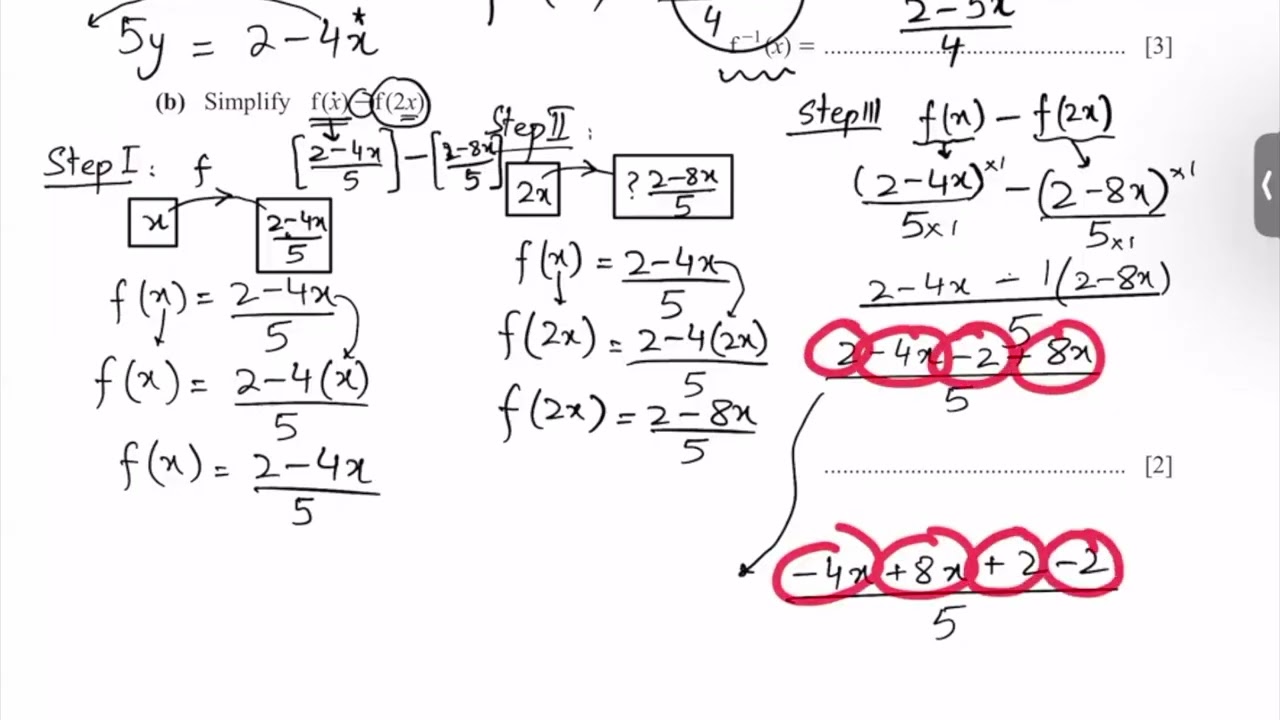 5y = 2 - 4x
4
2 - 5x
f⁻¹(x) = ............................................ [3]
4
(b) Simplify f(x) - f(2x)
Step I : f
x
2-4x
5
f(x) = 2-4x
5
f(x) = 2-4(x)
5
f(x) = 2-4x
5
[2-4x / 5] - [2-8x / 5]
Step II :
2x
? 2-8x
5
f(x) = 2-4x
5
f(2x) = 2-4(2x)
5
f(2x) = 2-8x
5
Step III f(x) - f(2x)
(2-4x)×1 - (2-8x)×1
5×1 5×1
2-4x - 1(2-8x)
5
2-4x-2+8x
5
............................................ [2]
-4x+8x+2-2
5